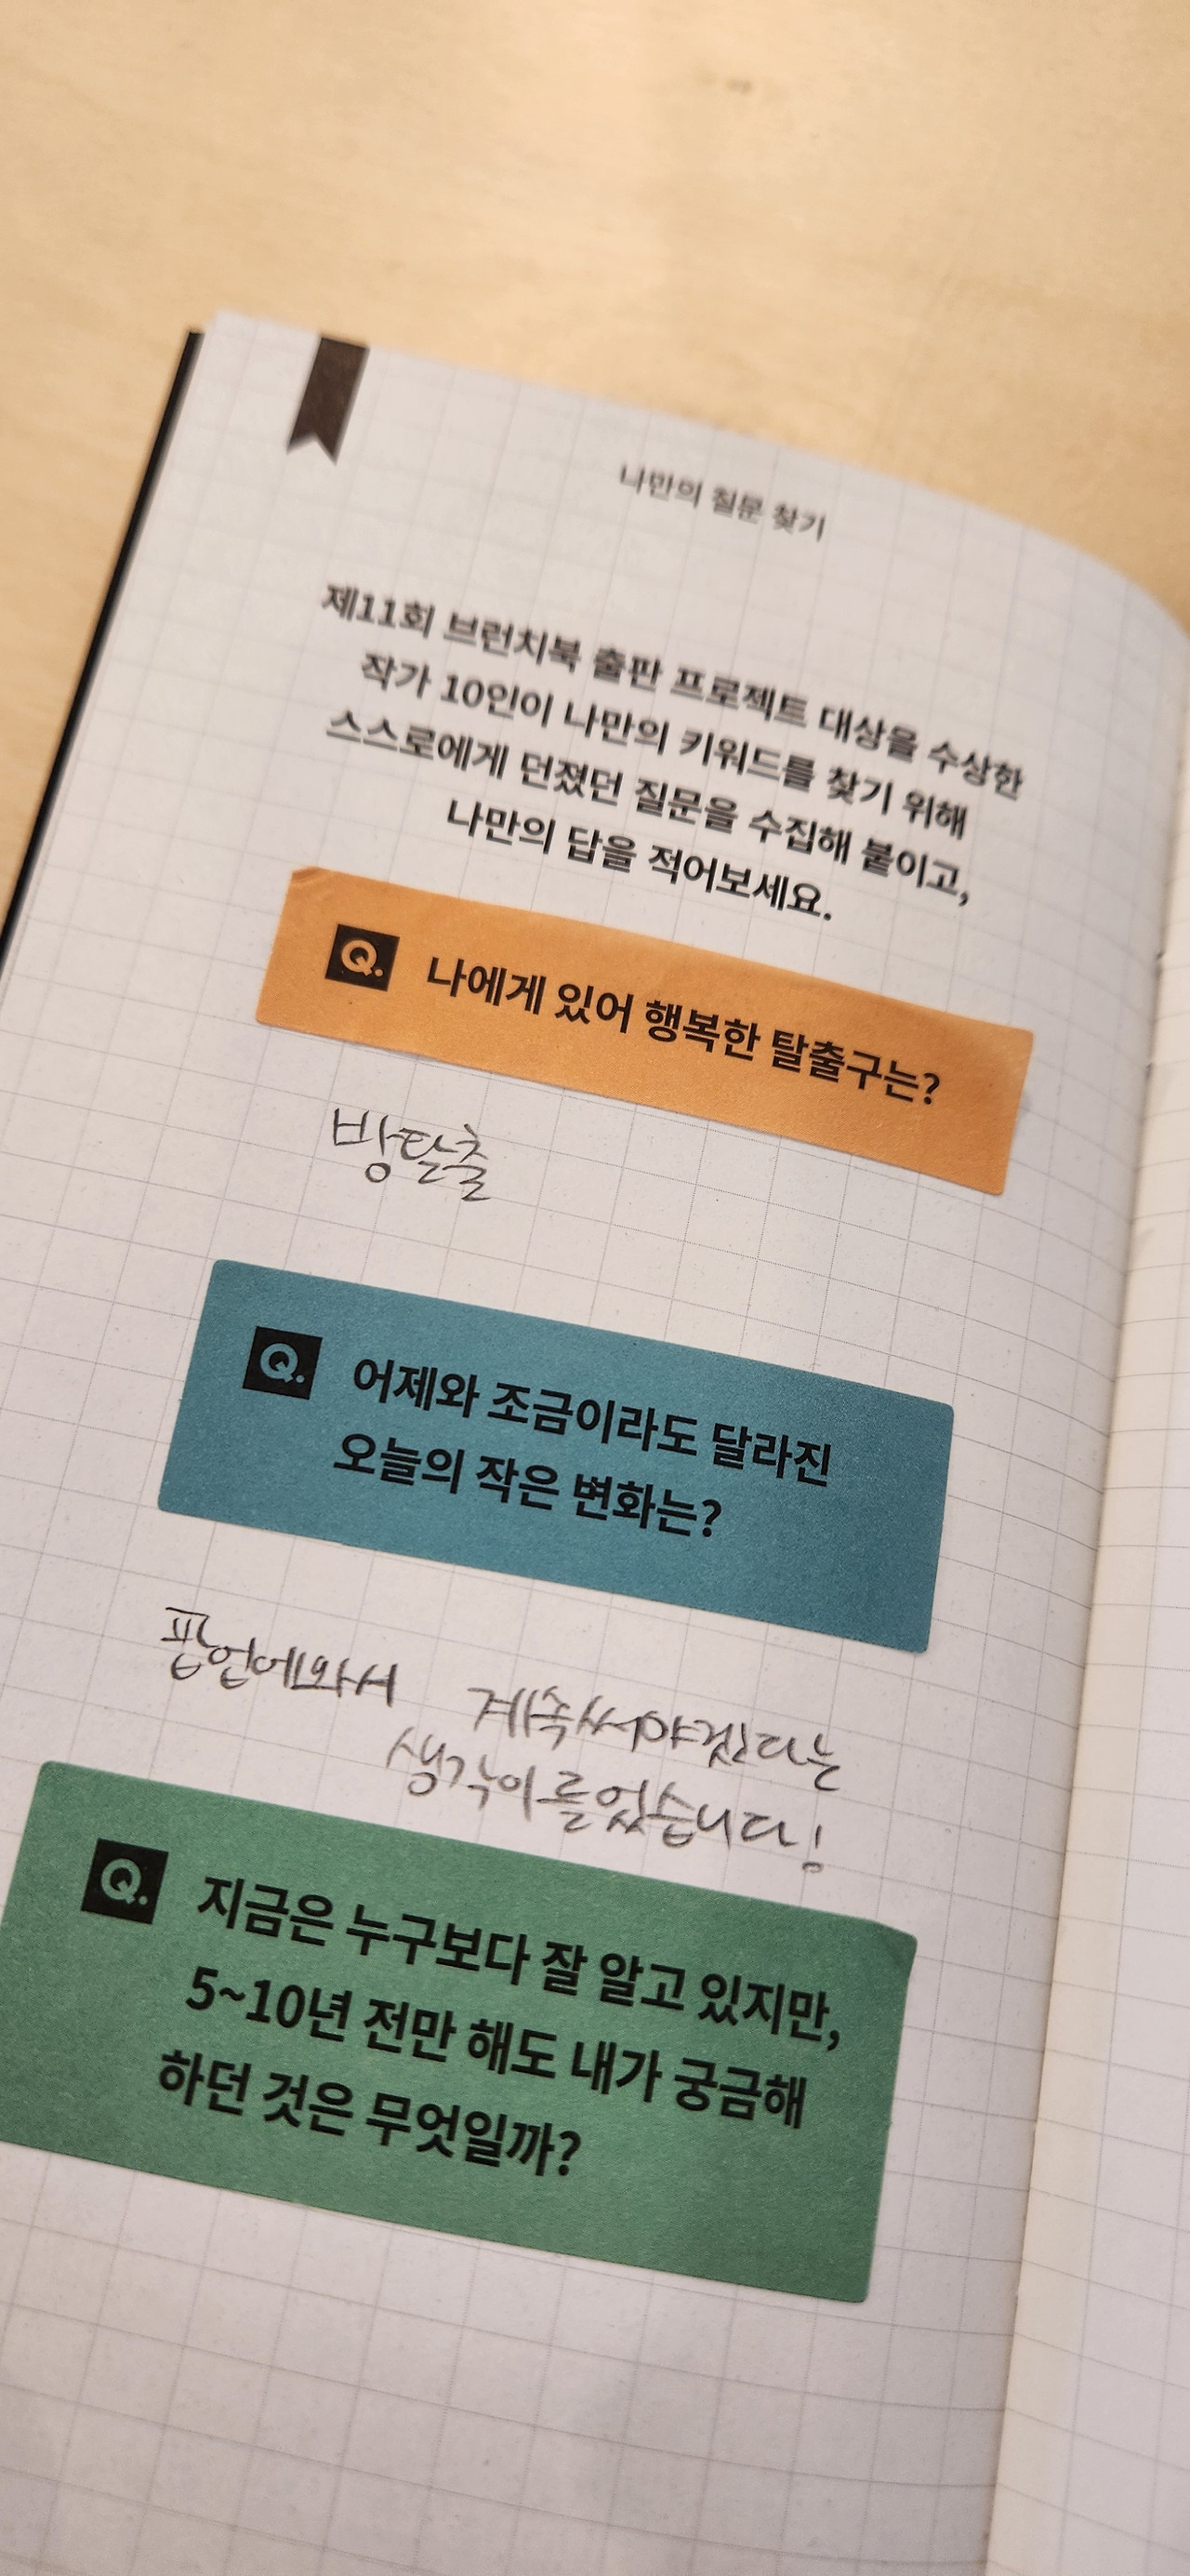 나만의 질문 찾기
제11회 브런치북 출판 프로젝트 대상을 수상한
작가 10인이 나만의 키워드를 찾기 위해
스스로에게 던졌던 질문을 수집해 붙이고,
나만의 답을 적어보세요.
Q. 나에게 있어 행복한 탈출구는?
방탈출
Q. 어제와 조금이라도 달라진
오늘의 작은 변화는?
팝업에와서 계속써야겠다는
생각이를었습니다!
Q. 지금은 누구보다 잘 알고 있지만,
5~10년 전만 해도 내가 궁금해
하던 것은 무엇일까?